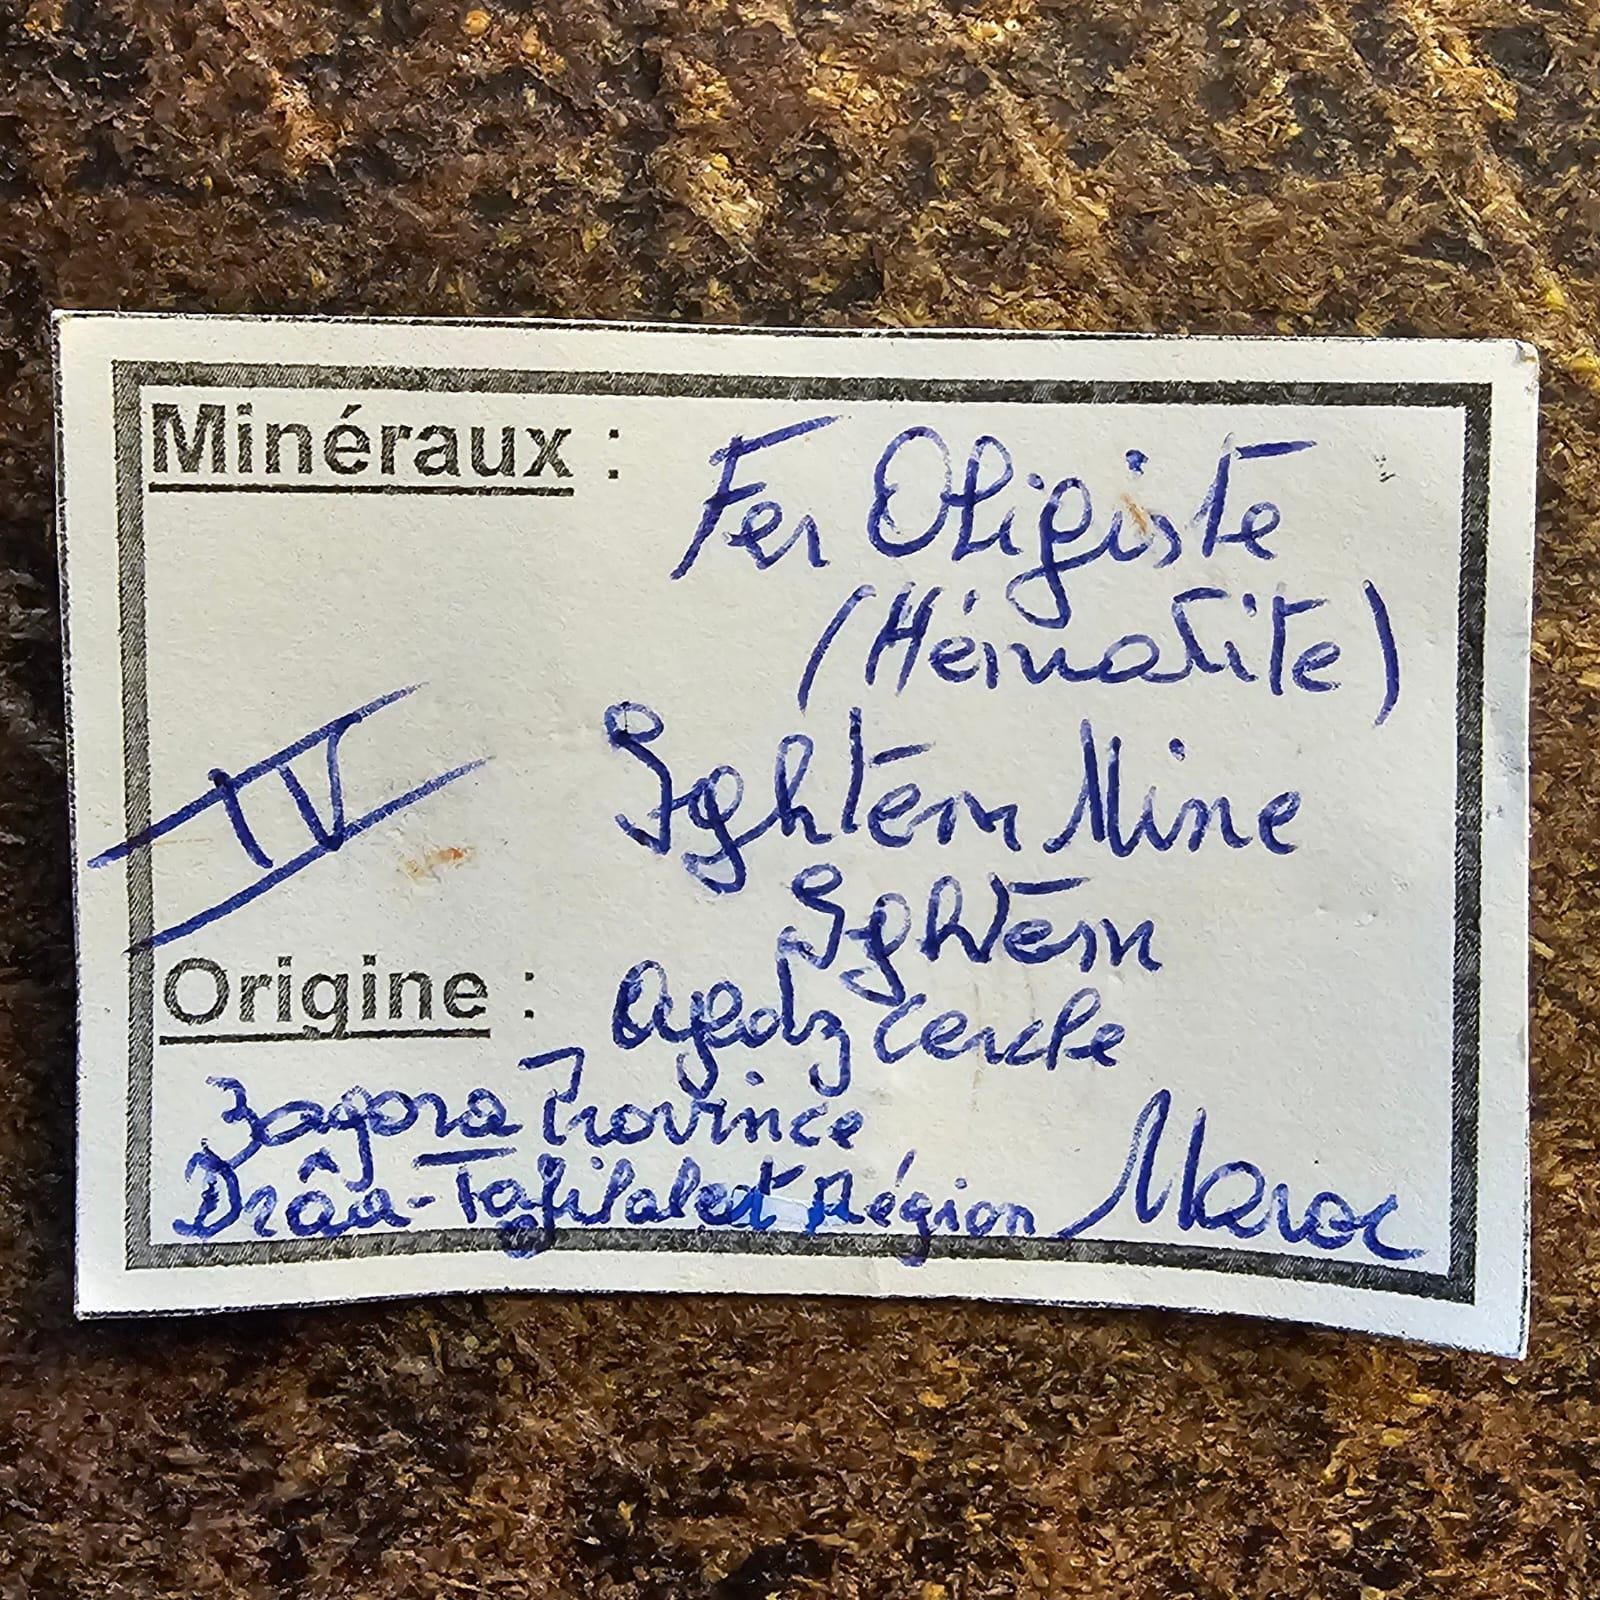 Minéraux : Fer Oligiste
(Hématite)
IV
Sghtem Mine
Sghtem
Origine : Agdz Cercle
Zagora Province
Drâa-Tafilalet Région Maroc